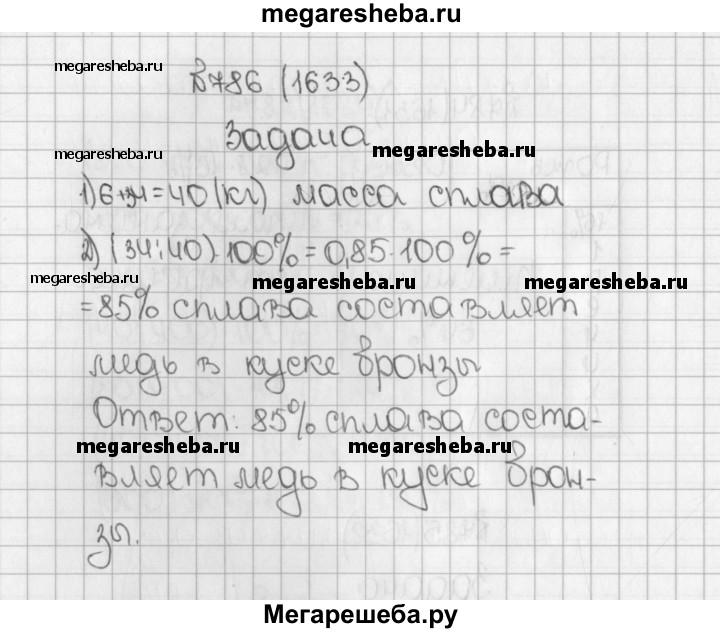 megaresheba.ru
megaresheba.ru
№786 (1633)
megaresheba.ru
Задача
megaresheba.ru
1) 6+34=40 (кг) масса сплава
2) (34:40)·100%=0,85·100%=
megaresheba.ru megaresheba.ru megaresheba.ru
=85% сплава составляет
медь в куске бронзы
Ответ: 85% сплава соста-
megaresheba.ru megaresheba.ru
вляет медь в куске брон-
зы.
Мегарешеба.ру